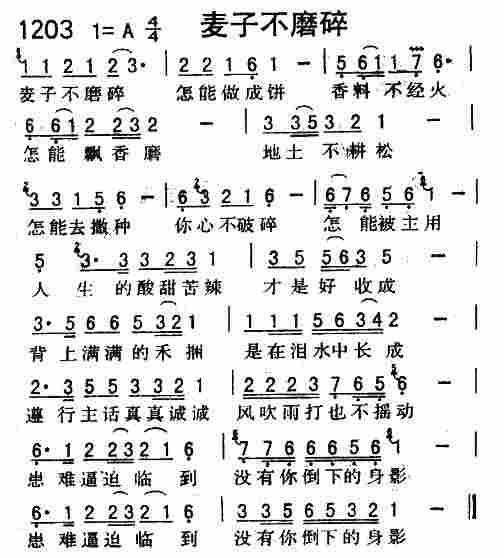 1203 1=A 4/4 麦子不磨碎
1 1 2 1 2 3· | 2 2 1 6 - | 5 6 1 1 7 6· |
麦子不磨碎 怎能做成饼 香料不经火
6 6 1 2 2 3 2 - | 3 3 5 3 2 1 - |
怎能飘香磨 地土不耕松
3 3 1 5 6 - | 6 3 2 1 6 - | 6 7 6 5 6 1 - |
怎能去撒种 你心不破碎 怎能被主用
5 3· 3 3 2 3 1 | 3 5 5 6 3 5 |
人生的酸甜苦辣 才是好收成
3· 5 6 6 5 3 2 1 | 1 1 1 5 6 3 4 2 - |
背上满满的禾捆 是在泪水中长成
2· 3 5 5 3 3 2 1 | 2 2 2 2 3 7 6 5 6 - |
遵行主话真真诚诚 风吹雨打也不摇动
6· 1 2 2 3 2 1 6 | 7 7 6 6 6 5 6 1 - |
患难逼迫临到 没有你倒下的身影
6· 1 2 2 3 2 1 6 | 5 5 3 2 3 5 2 1 - ‖
患难逼迫临到 没有你倒下的身影